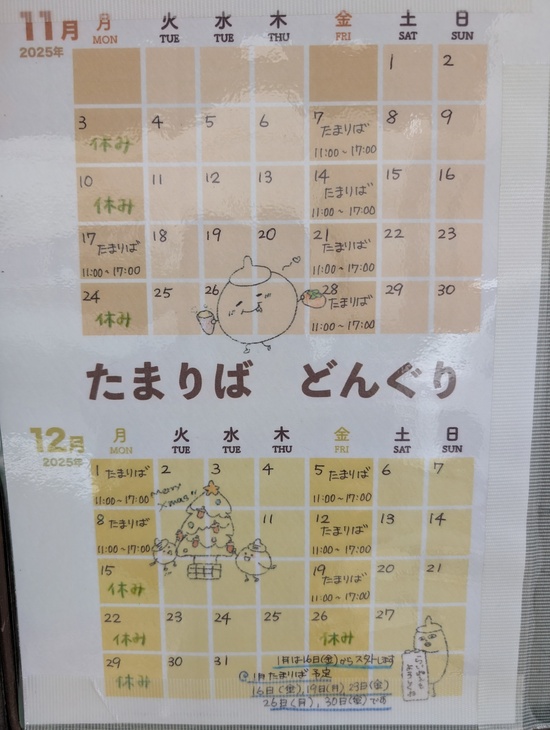 11月 月 火 水 木 金 土 日
2025年 MON TUE WED THU FRI SAT SUN
1 2
3 4 5 6 7 8 9
休み たまりば
11:00~17:00
10 11 12 13 14 15 16
休み たまりば
11:00~17:00
17 18 19 20 21 22 23
たまりば たまりば
11:00~17:00 11:00~17:00
24 25 26 28 29 30
休み たまりば
11:00~17:00
たまりば どんぐり
12月 月 火 水 木 金 土 日
2025年 MON TUE WED THU FRI SAT SUN
1 たまりば 2 3 4 5 たまりば 6 7
11:00~17:00 11:00~17:00
Merry
Xmas!!
8 たまりば 11 12 たまりば 13 14
11:00~17:00 11:00~17:00
15 19 たまりば 20 21
休み 11:00~17:00
22 23 24 25 26 27
休み 休み
29 30 31
休み
1月は16日(金)からスタートします
@1月たまりば 予定
16日(金),19日(月) 23日(金)
26日(月), 30日(金)です